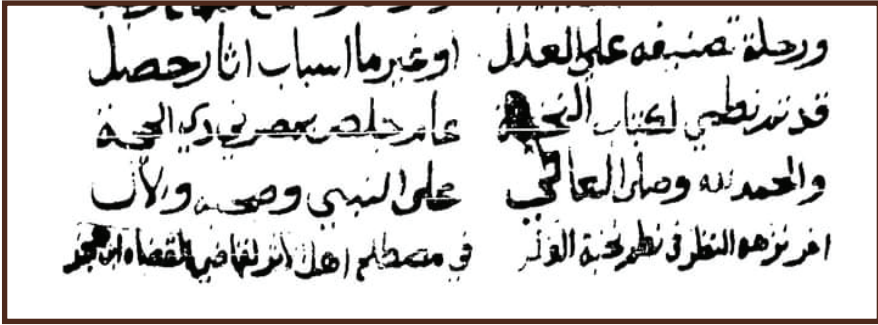 ورحلة تصنيفه على العلل او غير ما اسباب اثار حصل
قد تم نظمي لكتاب النخبة عام خلص بمصر في ذي الحجة
والحمد لله وصلى العالي على النبي وصحبه والال
اخر نزهه النظر في نظم نخبة الفكر في مصطلح اهل الاثر لقاضي القضاه ابن حجر